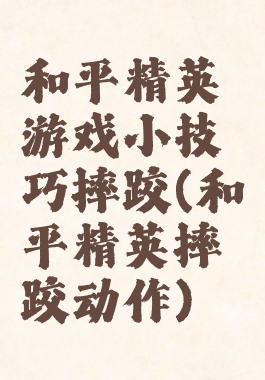 和平精英
游戏小技
巧摔跤(和
平精英摔
跤动作)